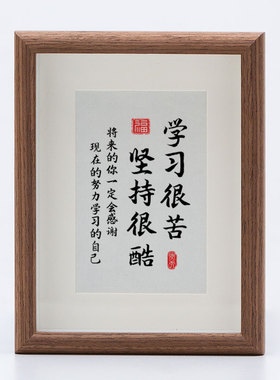 学习很苦
坚持很酷
福
将来的你一定会感谢
现在的努力学习的自己